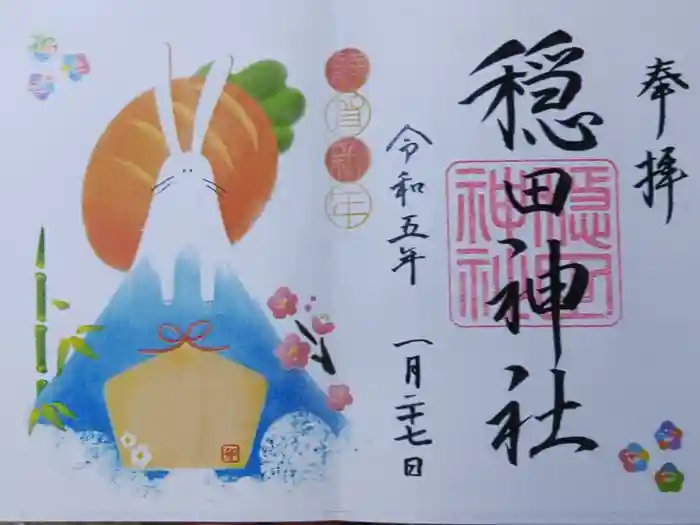 奉拝
穏田神社
穏田
神社
令和五年 一月二十七日
恭賀新年
卯